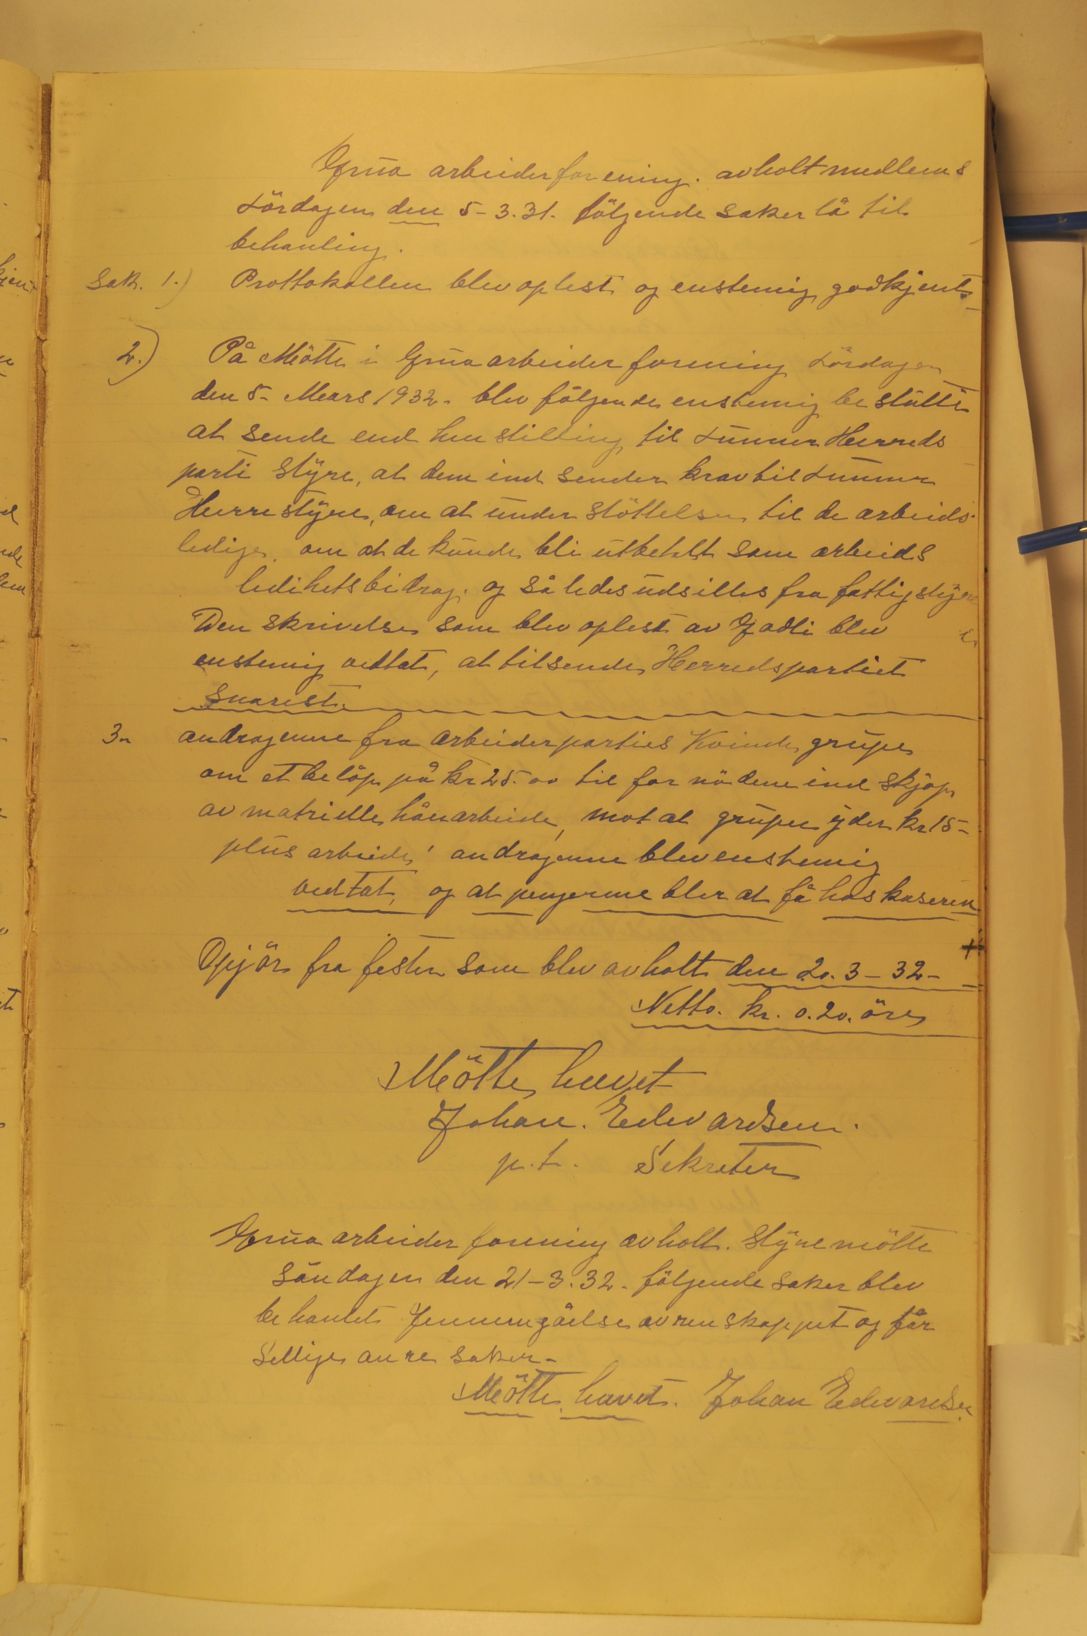 Grua arbeiderforening. avholt medlems
Lördagen den 5-3.31. følgende saker lå til
behanling.
Sak. 1.) Prottokollen blev oplest og enstemig godkjent
2.) På Mötte i Grua arbeider forening Lördagen
den 5- Mars 1932. blev følgende enstemig be slutte
at sende end hen stilling til Lunner Herreds
parti Styre, at dem ind sender krav til Lunner
Herre styre, om at under støttelsen til de arbeids
ledige om at de kunde bli utbetalt som arbeids
ledihets bidrag. og så ledes udsilles fra fattigstyre
Den skrivelse som blev oplest av blev
enstemig vettat, at tilsende Herredspartiet
snarest.
3. andragenne fra arbeiderparties Kvinde grupe
om et beløp på kr 25.00 til for nødene ind skjøp
av matrielle hånarbeide, mot at grupen yder kr 15-
plus arbeide! andragenne blev enstemig
vedtat, og at pengenne blir at få hos kaseren
Opjör fra festen som blev avholt den 20.3-32-
Netto. kr. 0.20. öre
Mötte hevet
Johan. Edvardsen.
p.t. Sekreter
Grua arbeider forening avholt. Styremötte
Söndagen den 21-3.32. følgende saker blev
be hanlet. Jennemgåelse av renskapet og får
sellige anre saker-
Mötte hevet. Johan Edvardsen